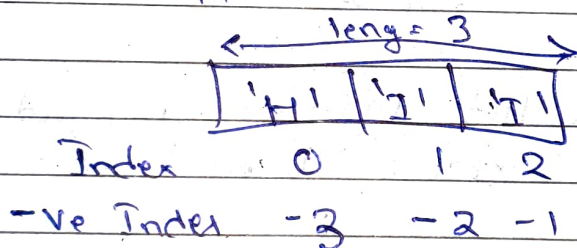 leng = 3
'H' 'I' 'I'
Index 0 1 2
-ve Index -3 -2 -1